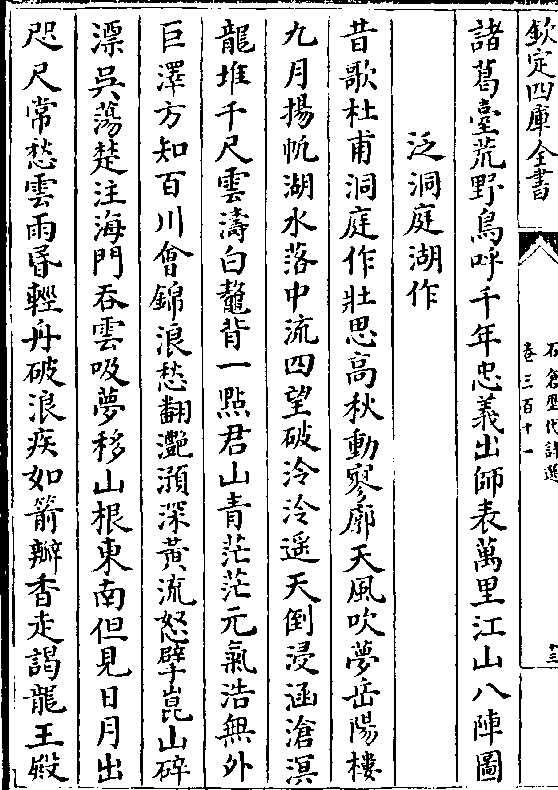 欽定四庫全書
石倉歷代詩選
卷三百十一
十三
諸葛臺荒野鳥呼千年忠義出師表萬里江山八陣圖
泛洞庭湖作
昔歌杜甫洞庭作壯思高秋動寥廓天風吹夢岳陽樓
九月揚帆湖水落中流四望破泠泠遥天倒浸涵滄溟
龍堆千尺雲濤白鼇背一點君山青茫茫元氣浩無外
巨澤方知百川會錦浪愁翻灧澦深黄流怒擘崑山碎
漂吳蕩楚注海門吞雲吸夢移山根東南但見日月出
咫尺常愁雲雨昬輕舟破浪疾如箭瓣香走謁龍王殿